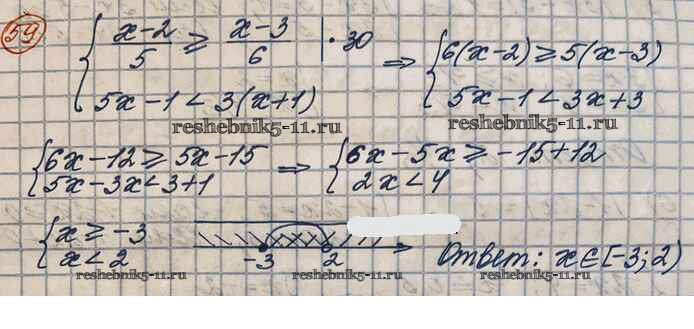 59
{ (x-2)/5 ≥ (x-3)/6 |·30 => { 6(x-2) ≥ 5(x-3)
5x-1 < 3(x+1) 5x-1 < 3x+3
reshebnik5-11.ru reshebnik5-11.ru
{ 6x-12 ≥ 5x-15 => { 6x-5x ≥ -15+12
5x-3x < 3+1 2x < 4
{ x ≥ -3
x < 2 -3 2 Ответ: x∈[-3;2)
reshebnik5-11.ru reshebnik5-11.ru reshebnik5-11.ru